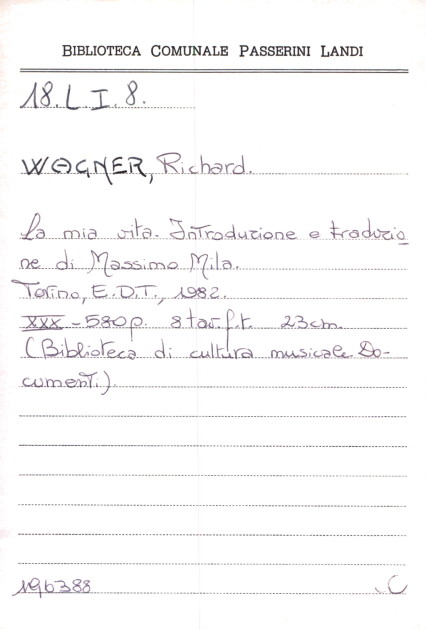 BIBLIOTECA COMUNALE PASSERINI LANDI
18. L I. 8.
WAGNER, Richard.
La mia vita. Introduzione e traduzio
ne di Massimo Mila.
Torino, E.D.T., 1982.
XXX - 580p. 8 tav. f.t. 23cm.
(Biblioteca di cultura musicale. Do-
cumenti).
196388
C